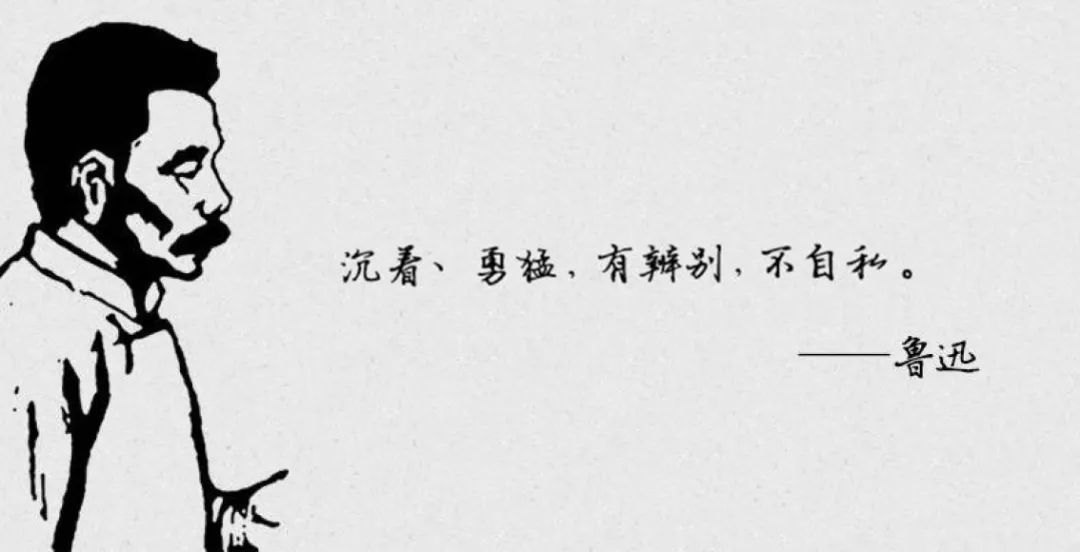 沉着、勇猛,有辨别,不自私。
——鲁迅